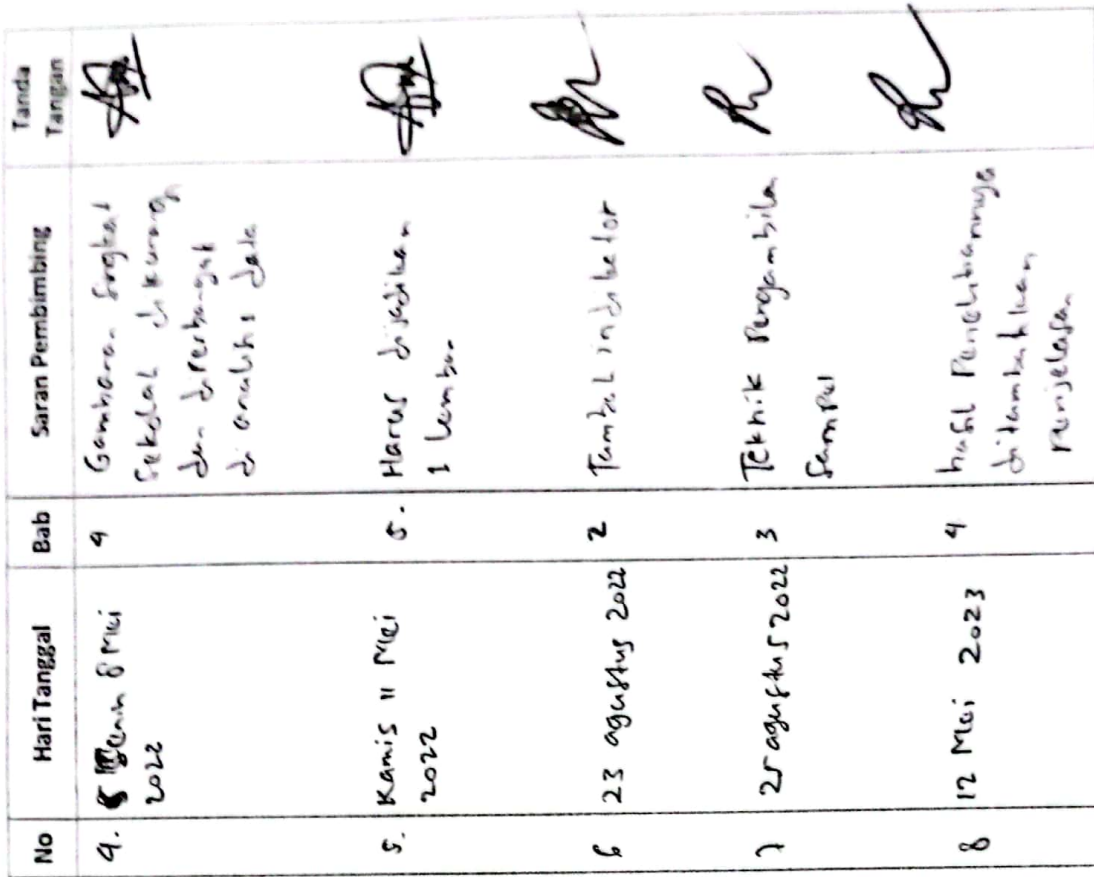 No Hari Tanggal Bab Saran Pembimbing Tanda Tangan
4. Senin 8 Mei 4 Gambaran Singkat
2022 Sekolah dikurangi
dan diperbanyak
di analisis data
5. Kamis 11 Mei 5. Harus dijadikan
2022 1 lembar
6 23 agustus 2022 2 Tambah indikator
7 25 agustus 2022 3 Teknik Pengambilan
Sampel
8 12 Mei 2023 4 hasil Penelitiannya
ditambahkan
Penjelasan